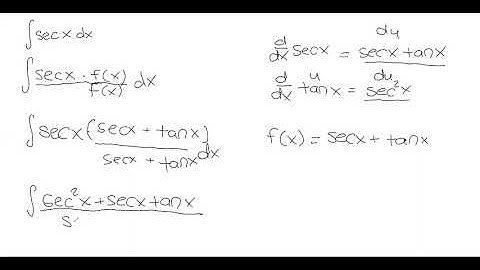 ∫ sec x dx
∫ sec x · f(x) / f(x) dx
∫ sec x (sec x + tan x) / sec x + tan x dx
∫ sec² x + sec x tan x / s
du
d/dx sec x = sec x tan x
u du
d/dx tan x = sec² x
f(x) = sec x + tan x